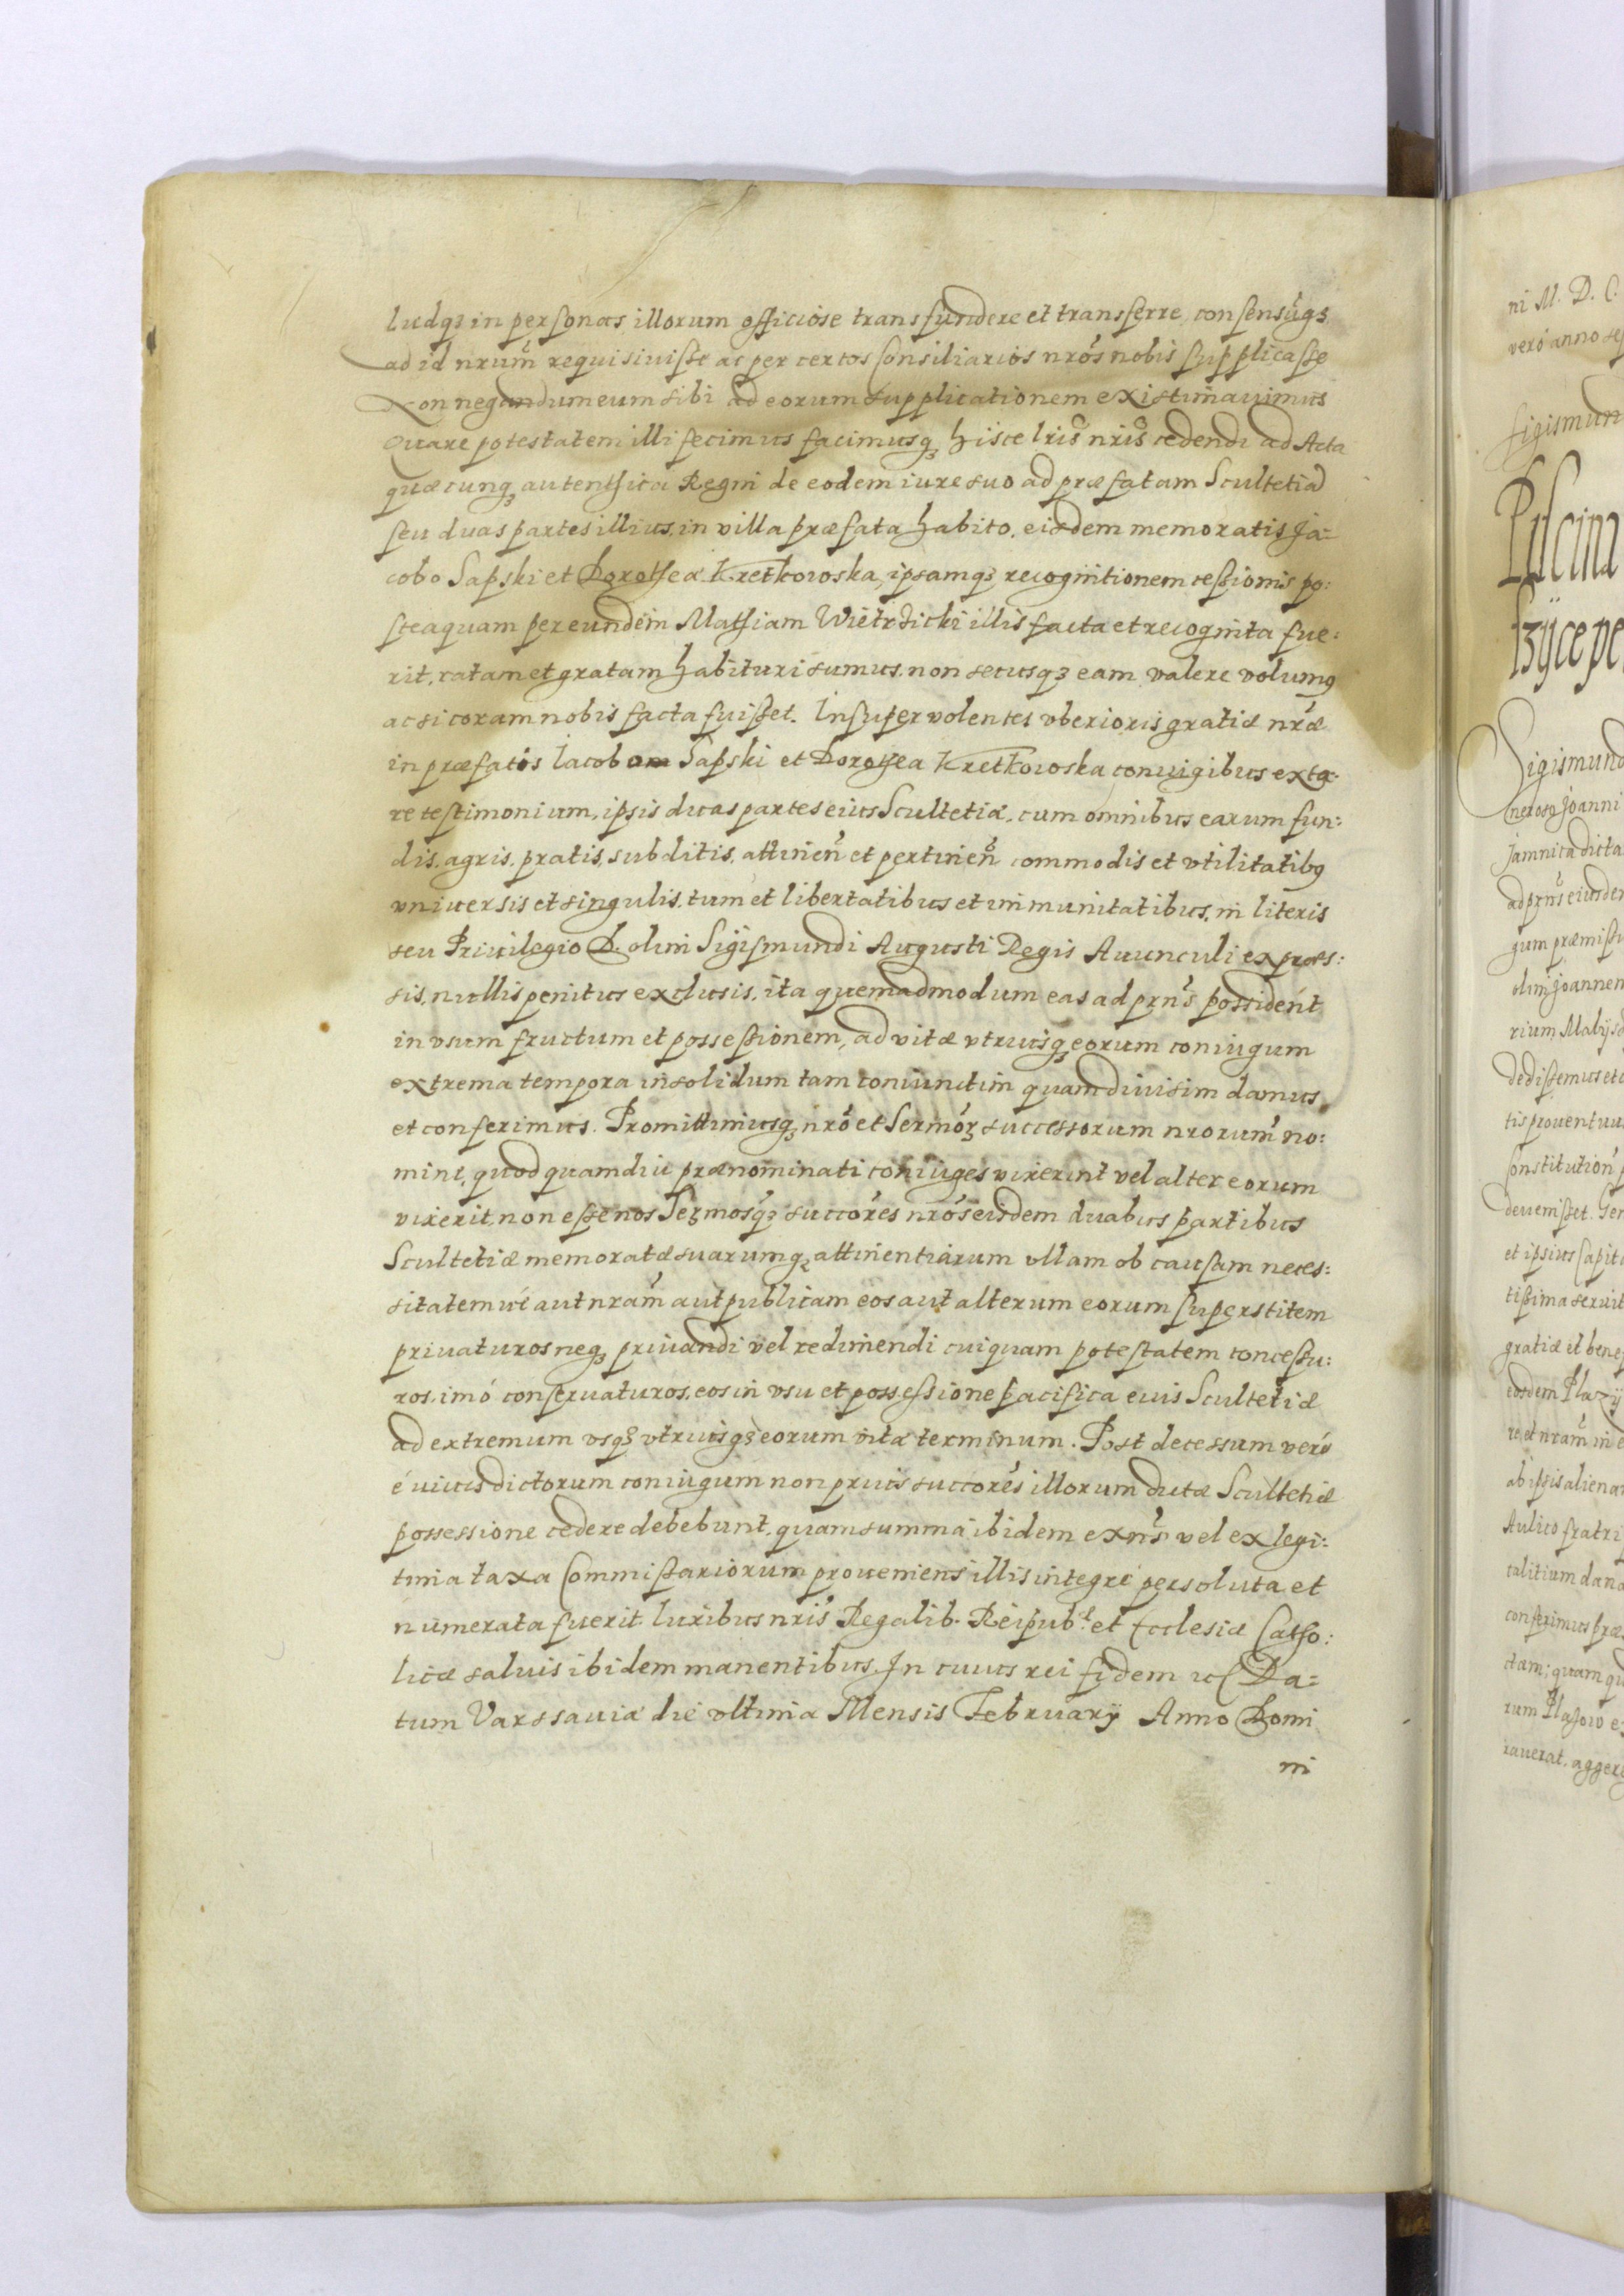 ludqз in personas illorum officiose transfundere et transferre, consensúqз
ad id nrum̃ requisiuisse ac per certos Consiliarios nrõs nobis supplicasse
Non negandum eum sibi ad eorum supplicationem existimauimus
Quare potestatem illi fecimus facimusqз hisce lris̃ nris̃ cedendi ad Acta
quæcunqз autenthica Regni de eodem iure suo ad præfatam Scultetiã
seu duas partes illius, in villa præfata habito, eisdem memoratis Ja-
cobo Sapski et Dorotheæ Kretkowska, ipsamqз recognitionem cessionis po:
steaquam per eundem Mathiam Wietrzicki illis facta et recognita fue:
rit, ratam et gratam habituri sumus, non secusqз eam valere volumꝰ
ac si coram nobis facta fuisset. Insuper volentes vberioris gratiæ nrǽ
in præfatos Iacobom Sapski et Dorothea Kretkowska coniugibus exta:
re testimonium, ipsis duas partes eius Scultetiæ, cum omnibus earum fun:
dis, agris, pratis, subditis, attineñ et pertineñ commodis et vtilitatibꝰ
vniuersis et singulis, tum et libertatibus et immunitatibus, in literis
seu Priuilegio D. olim Sigismundi Augusti Regis Auunculi expræs:
sis, nullis penitus exclusis, ita quemadmodum eas ad prñs possideńt
in vsum fructum et possessionem, ad vitæ vtriusqз eorum coniugum
extrema tempora in solidum tam coniunctim quam diuisim damus
et conferimus. Promittimusqз nrõ et Sermõꝝ successorum nrorum̃ no:
mine, quod quamdiu prænominati coniuges vixerint vel alter eorum
vixerit, non esse nos Sermosq̃з succorẽs nrõs eisdem duabus partibus
Scultetiæ memoratæ suarumqз attinentiarum vllam ob causam neces:
sitatem ué aut nram̃ aut publicam eos aut alterum eorum superstitem
priuaturos neqз priuandi vel redimendi cuiquam potestatem concessu:
ros, imó conseruaturos, eos in vsu et possessione pacifica euis Scultetiæ
ad extremum vsqз vtriusqз eorum vitæ terminum. Post decessum veró
é viuis dictorum coniugum non prius succorẽs illorum dictæ Scultetiæ
possessione cedere debebunt, quam summa ibidem exñs vel ex legi:
tima taxa Commissariorum proueniens illis integré persoluta et
númerata fuerit. Iuribus nris̃ Regalib. Reipubl̃. et Ecclesiæ Catho:
licæ saluis ibidem manentibus. In cuius rei fidem ꝛc Da=
tum Varssauiæ die vltima Mensis February Anno Domi
ni